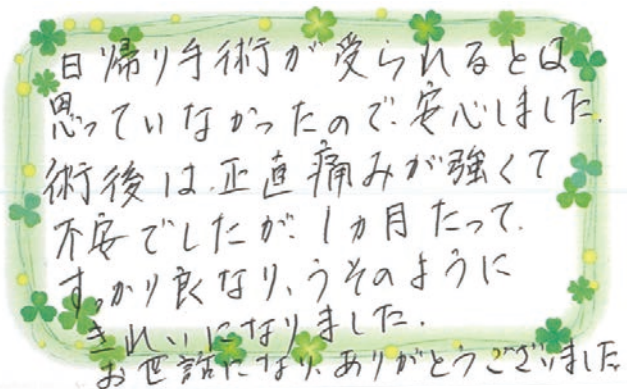 日帰り手術が受られるとは
思っていなかったので、安心しました。
術後は、正直痛みが強くて
不安でしたが、1ヵ月たって、
すっかり良なり、うそのように
きれいになりました。
お世話になり、ありがとうございました